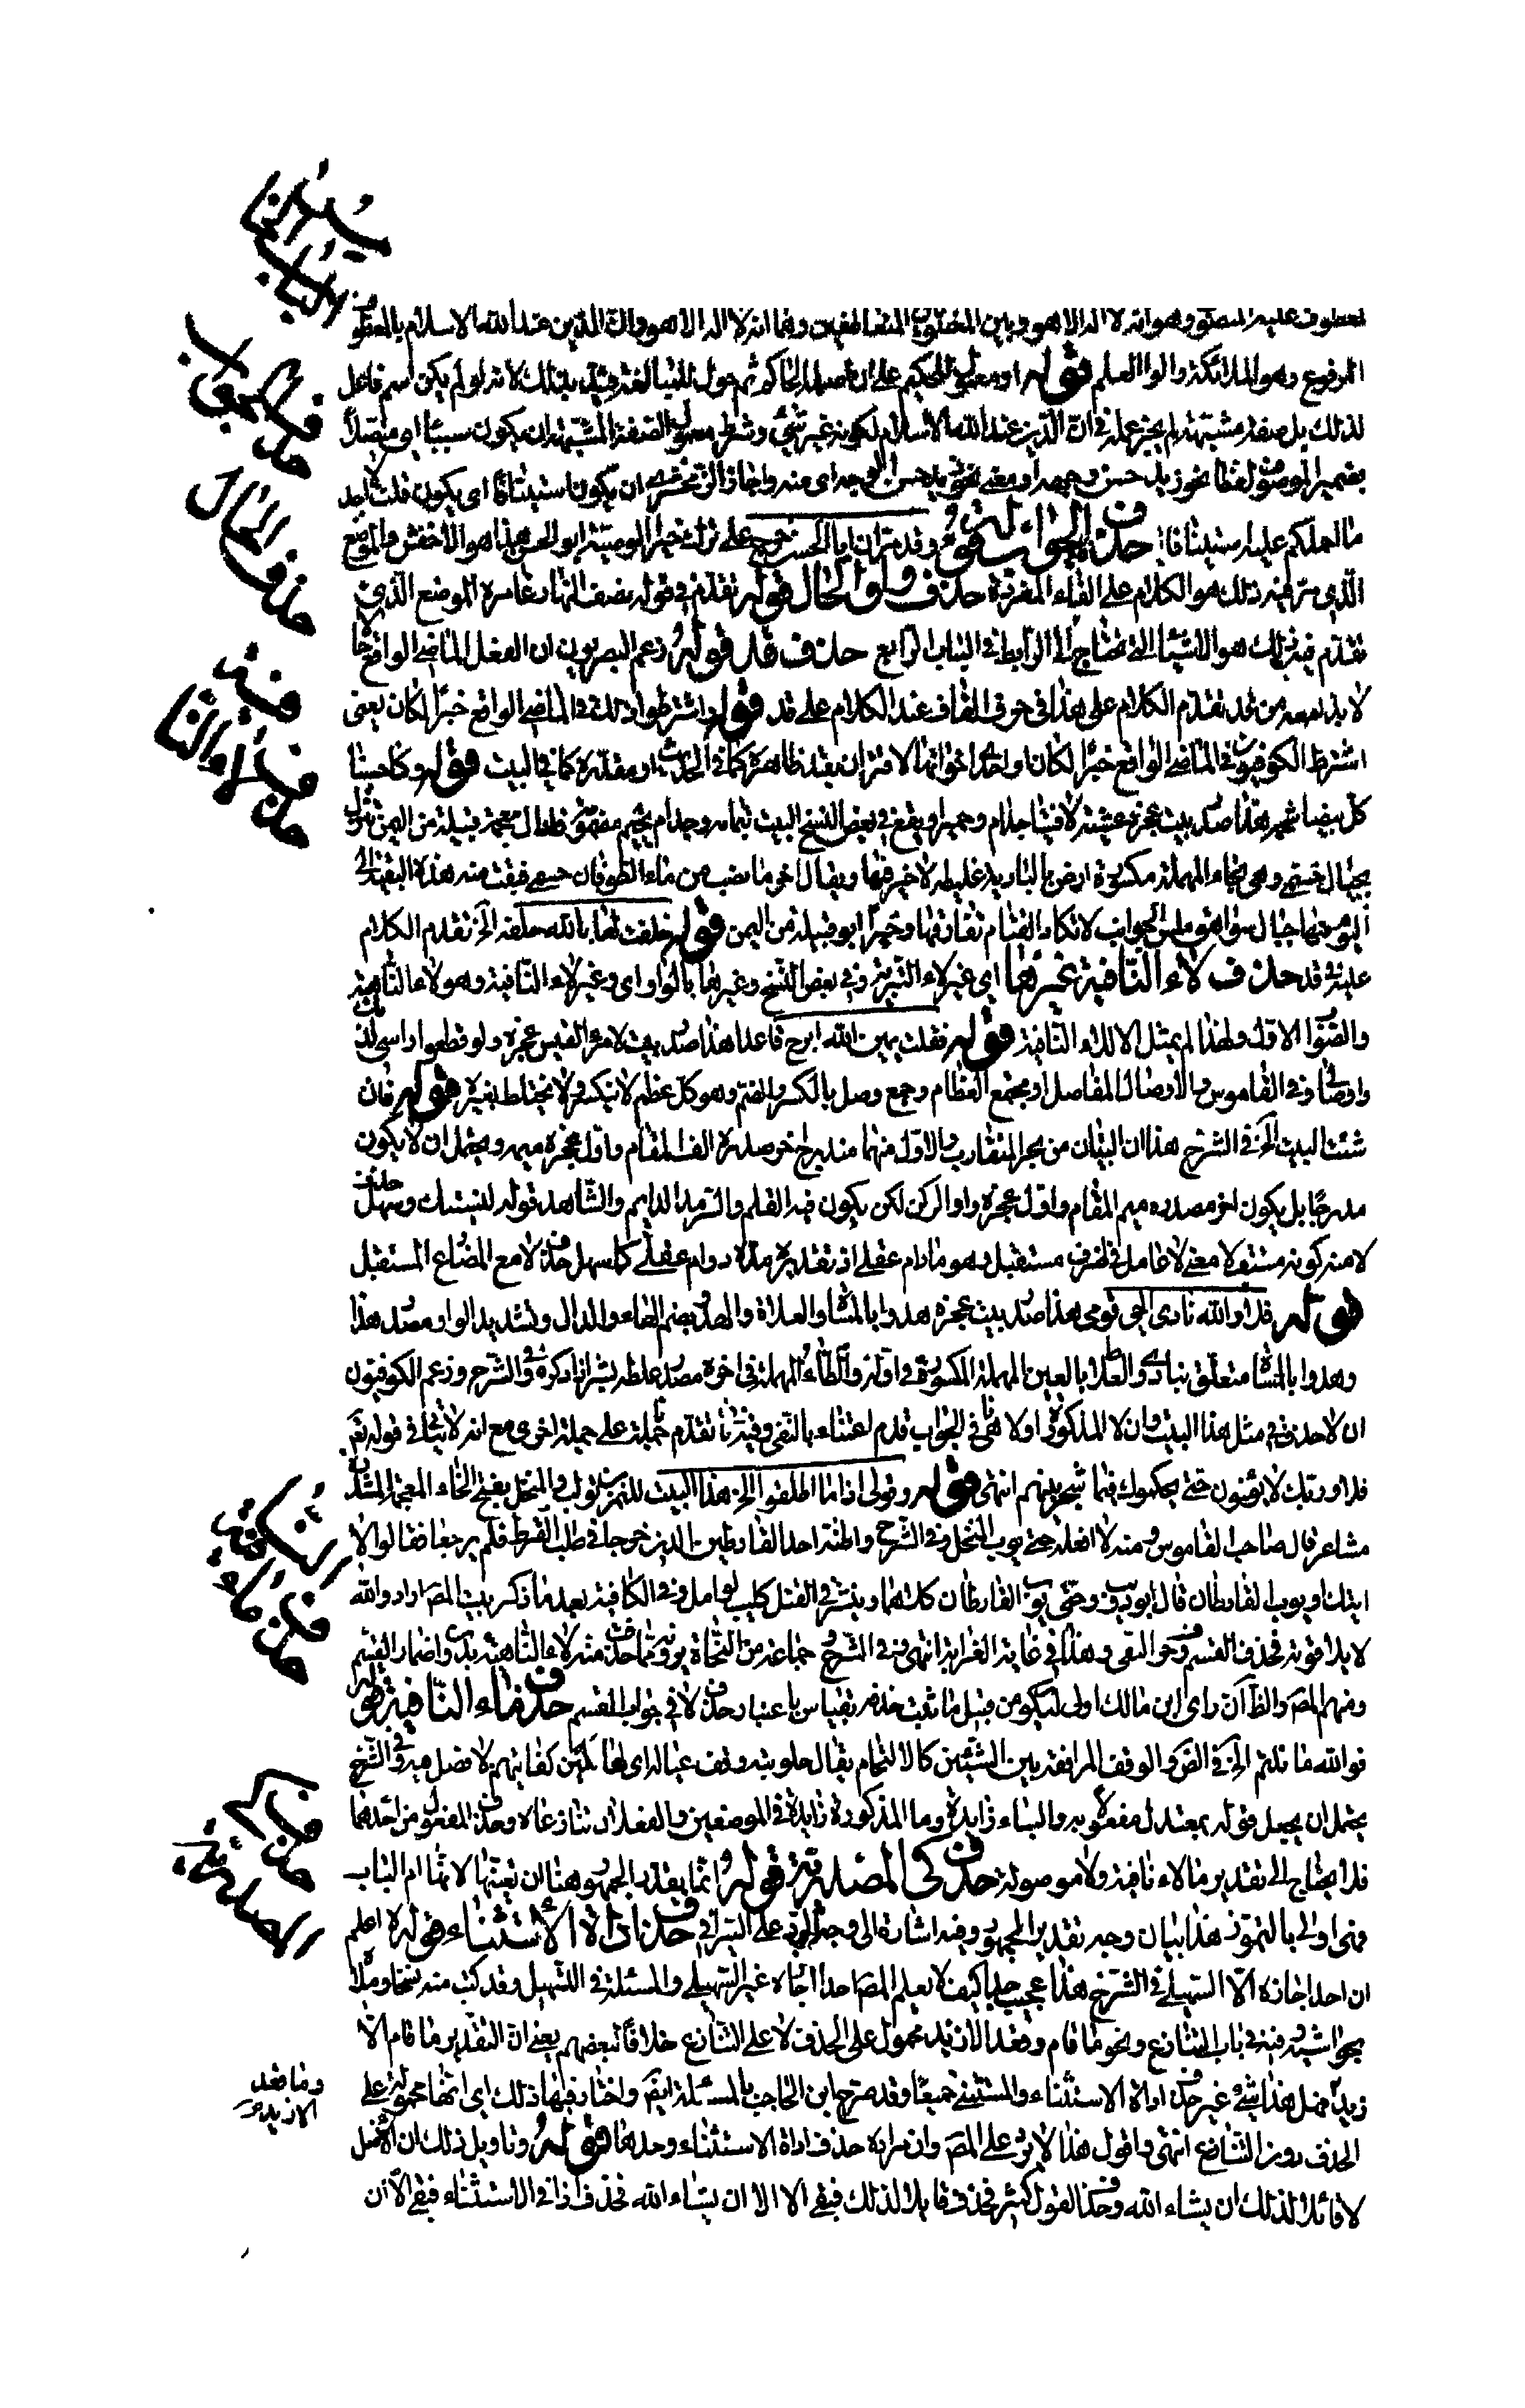 لمعطوف عليه المنصوب وهو انه لا اله الا هو وبين المنصوبين المتعاطفين وهما انه لا اله الا هو وان الدين عند الله الاسلام بالمعطوف
المرفوع وهو الملائكة واولوا العلم قوله او معمول للحكيم على ان اصله الحاكم ثم حول للمبالغة قيل بذلك لانه لو لم يكن اسم فاعل
لذلك بل صفة مشبهة لم يجز عمله في ان الدين عند الله الاسلام لكونه غير سببي وشرط معمول الصفة المشبهة ان يكون سببيا اي متصلا
بضمير الموصوف لفظا نحو زيد حسن وجهه او معنى نحو زيد حسن الوجه اي منه واجاز الزمخشري ان يكون استينافا اي يكون قلت لا اجد
ما احملكم عليه استينافا حذف فاء الجواب قوله وقد مر ان ابا الحسن خرج على ترك خيرا الوصية ابو الحسن هذا هو الاخفش والموضع
الذي مر فيه ذلك هو الكلام على الفاء المفردة حذف واو الحال قوله تقدم في قوله نصف النهار غامره الموضع الذي
تقدم فيه ذلك هو الاشياء التي تحتاج الى الرابط في الباب الرابع حذف قد قوله زعم البصريون ان الفعل الماضي الواقع حالا
لا بد معه من قد تقدم الكلام على هذا في حرف القاف عند الكلام على قد قوله واشترطوا ذلك في الماضي الواقع خبرا لكان يعني
اشترط الكوفيون في الماضي الواقع خبرا لكان واحد اخواتها الاقتران بقد ظاهرة كما في الحديث او مقدرة كما في البيت قوله وكنا حسبنا
كل بيضاء شحمة هذا صدر بيت عجزه عشية لاقينا جذام وحميرا ويقع في بعض النسخ البيت بتمامه وجذام بجيم مضمومة فذال معجمة قبيلة من اليمن تنزل
بجبال حسمى وهي بحاء مهملة مكسورة ارض بالبادية غليظة لا خير فيها ويقال اخر ما نضب من ماء الطوفان حسمى فبقيت منه هذه البقية الى
اليوم فيها جبال شواهق ملس الجوانب لا تكاد القتام تفارقها وحمير ابو قبيلة من اليمن قوله حلفت لها بالله حلفة الخ تقدم الكلام
عليه في قد حذف لاء النافية غيرها اي غير لاء التبرئة وفي بعض النسخ وغيرها بالواو اي وغير لاء النافية وهو لاء الناهية
والصواب الاول ولهذا لم يمثل الا للاء النافية قوله فقلت يمين الله ابرح قاعدا هذا صدر بيت لامرء القيس عجزه ولو قطعوا راسي لديك
واوصالي وفي القاموس والاوصال المفاصل او مجتمع العظام وجمع وصل بالكسر والضم وهو كل عظم لا يكسر ولا يختلط بغيره قوله فان
شئت البيت الخ في الشرح هذان البيتان من بحر المتقارب والاول منهما مدرج اخر صدره الف المقام واول عجزه ميمه ويحتمل ان لا يكون
مدرجا بل يكون اخر صدره ميم المقام واول عجزه واو الركن لكن يكون فيه الثلم والسرمد الدايم والشاهد قوله لنسيتك وسهل حذف
لا منه كونه مستقبلا معنى لا عامل في ظرف مستقبل وهو ما دام عقلي اذ تقديره مدة دوام عقلي كما سهل حذف لا مع المضارع المستقبل
قوله فلا والله نادى الحي قومي هذا صدر بيت عجزه هدوا بالمساءة والعلاط والهدو بضم الهاء والدال وتشديد الواو مصدر هدا
وهدوا بالمساءة متعلق بنادى والعلاط بالعين المهملة المكسورة في اوله والطاء المهملة في اخره مصدر علطه بشر اذا ذكره وفي الشرح وزعم الكوفيون
ان لا حذف في مثل هذا البيت وان لا المذكورة اولا هي في الجواب قدم اعتناء بالنفي وفيه تقدم جملة على جملة اخرى مع انه لا يتاتى في قوله تعالى
فلا وربك لا يؤمنون حتى يحكموك فيما شجر بينهم انتهى قوله وقولي اذا ما اطلقوا الخ هذا البيت للنمر بن تولب والمنخل بفتح الخاء المعجمة المشددة
شاعر قال صاحب القاموس ومنه لا افعله حتى يؤب المنخل وفي الشرح والمنتر احد القارظين الذين خرجا في طلب القرظ فلم يرجعا فقالوا لا
اتيك او يؤب القارظان قال ابو ذؤيب وحتى يؤب القارظان كلاهما وينشر في القتلى كليب لوايل وفي الكافية بعد ما ذكر بيت المص اراد والله
لا يلاقونه فحذف القسم وحرف النفي وهذا في غاية الغرابة انتهى وفي الشرح جماعة من النحاة يروونه مما حذف منه لاء الناهية بدون اضمار القسم
ومنهم المص والظاهر ان راى ابن مالك اولى ليكون من قبيل ما ثبت حذفه بقياس باعتبار حذف لا في جواب القسم حذف ماء النافية قوله
فوالله ما نلتم الخ في الشرح والوفق المرافقة بين الشيئين كالالتحام يقال حلوبته وفق عياله اي لها لبن كفايتهم لا فضل فيه وفي الشرح
يحتمل ان يجعل قوله بمعتدل مفعولا به والباء زايدة وما المذكورة زايدة في الموضعين والفعلان تنازعاه وحذف المفعول من احدهما
فلا يحتاج الى تقدير ما لاء نافية ولا موصولة حذف كي المصدرية قوله انما يقدر الجمهور هنا ان بعينها لانها ام الباب
فهي اولى بالتجوز هذا بيان وجه تقدير الجمهور وفيه اشارة الى وجه الرد على السيرافي حذف اداة الاستثناء قوله لا اعلم
ان احدا اجازه الا السهيلي في الشرح هذا عجيب جدا كيف لا يعلم المص احدا اجازه غير السهيلي والمسئلة في التسهيل وقد كتب منه نسخا وملا
بحواشيه فيه في باب التنازع ونحو ما قام وقعد الا زيد محمول على الحذف لا على التنازع خلافا لبعضهم يعني ان التقدير ما قام الا
زيد فهل هذا شئ غير حذف اداة الاستثناء والمستثنى جميعا وقد صرح ابن الحاجب بالمسئلة ايضا واختار فيها ذلك اي انها محمولة على
الحذف دون التنازع انتهى واقول هذا لا يرد على المص وان مراده حذف اداة الاستثناء وحدها قوله وتاويل ذلك ان الاصل
لا قائلا لذلك ان يشاء الله وحذف القول كثير فحذف قايلا لذلك فبقي الا الا ان يشاء الله فحذف اداة الاستثناء فبقي الا ان
حذف فاء الجواب
حذف واو الحال
حذف قد
حذف لاء النا
حذف ماء النافية
حذف كي
المصدرية
وما قعد
الا زيد